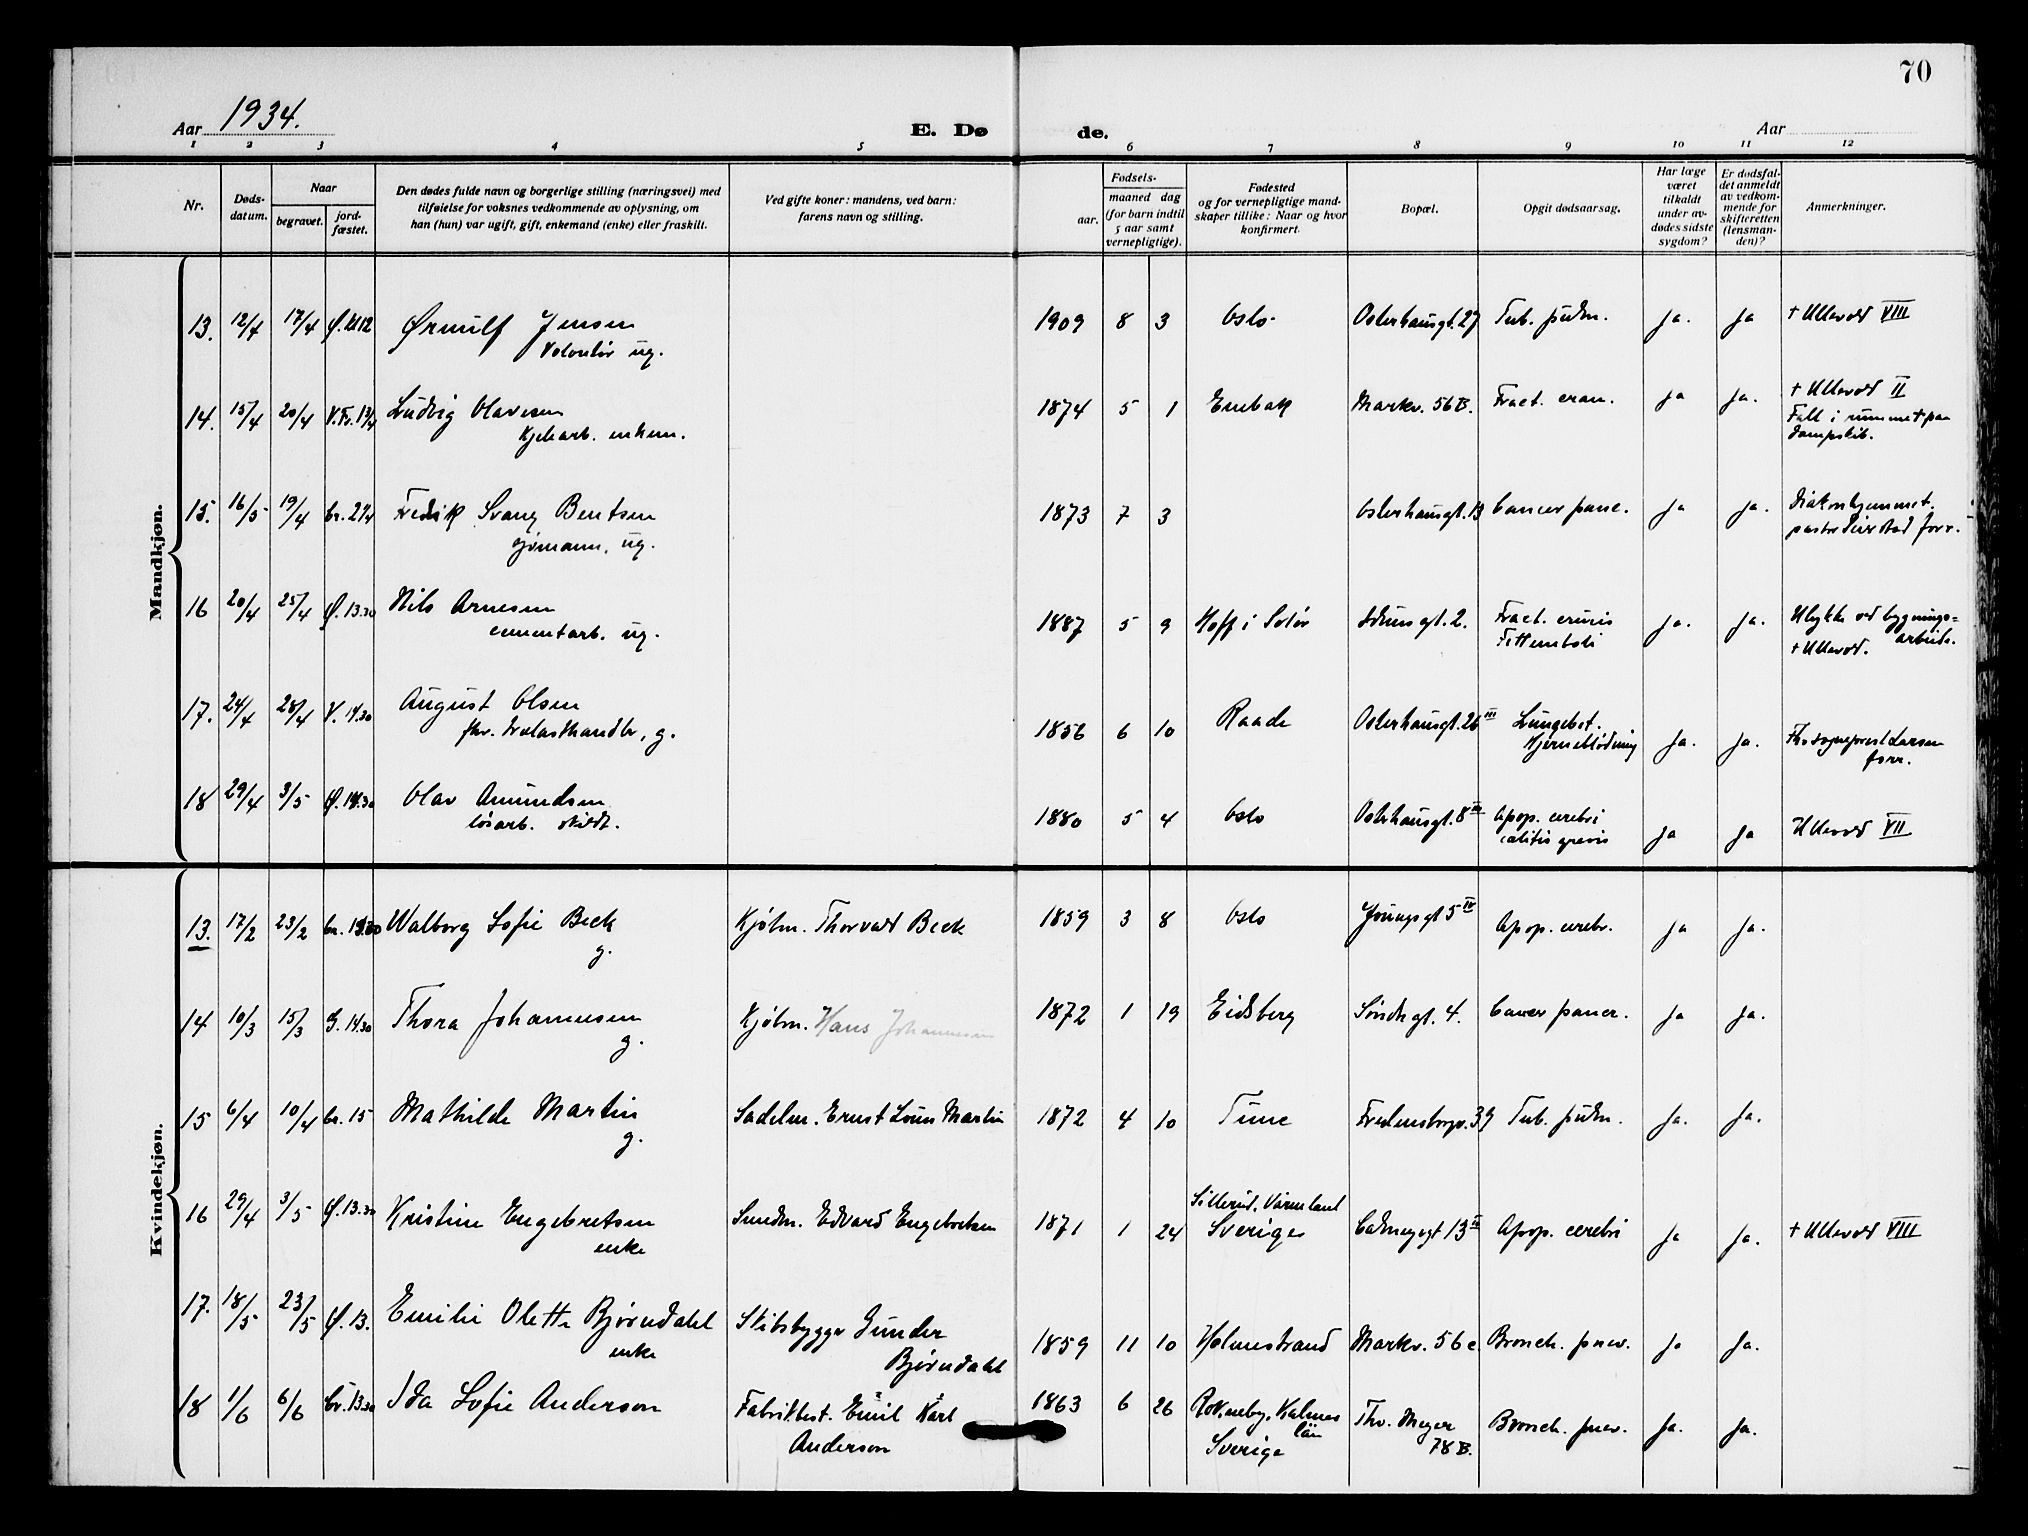 70
Aar 1934.
E. Dø de.
Aar
1 2 3 4 5 6 7 8 9 10 11 12
Nr.
Døds-
datum.
Naar
begravet.
jord-
fæstet.
Den dødes fulde navn og borgerlige stilling (næringsvei) med
tilføielse for voksnes vedkommende av oplysning, om
han (hun) var ugift, gift, enkemand (enke) eller fraskilt.
Ved gifte koner: mandens, ved barn:
farens navn og stilling.
Fødsels-
aar.
maaned dag
(for barn indtil
5 aar samt
vernepligtige).
Fødested
og for vernepligtige mand-
skaper tillike: Naar og hvor
konfirmert.
Bopæl.
Opgit dødsaarsag.
Har læge
været
tilkaldt
under av-
dødes sidste
sygdom?
Er dødsfal-
det anmeldt
av vedkom-
mende for
skifteretten
(lensman-
den)?
Anmerkninger.
Mandkjøn.
13. 12/4 17/4 Ø. Ørnulf Jensen 1909 8 3 Oslo Osterhausgt. 27 Tub. pulm. ja. ja + Ullevold VIII
Volontør ug.
14. 15/4 20/4 Ludvig Olavesen 1874 5 1 Enebak Markv. 56B. Fract. cran. ja ja. + Ullevold II
enkem. Fall i rummet paa
dampskib.
15. 16/5 19/4 Fredrik Svang Bentsen 1873 7 3 Osterhausgt. 13 Cancer panc. ja ja. Diakonhjemmet.
ug. pastor forr.
16 20/4 25/4 Ø. 13.30 Nils Arnesen 1887 5 9 Hoff i Solør Idunsgt. 2. Fract. cruris ja. ja. Ulykke ved bygnings=
cementarb. ug. Fettemboli + Ullevold. arbeide.
17. 24/4 28/4 V. 14.30 August Olsen 1856 6 10 Raade Osterhausgt. 26 III Lungebet. ja. ja.
fhv. trelasthandler, g. Hjerneblødning Larsen
forr.
18 29/4 3/5 Ø. Olav Amundsen 1880 5 4 Oslo Osterhausgt. 8 III Apop. cerebri ja ja Ullevold VII
løsarb. skildt.
Kvindekjøn.
13. 17/2 23/2 Cr. Walborg Sofie Beck Kjøbm. Thorvald Beck 1859 3 8 Oslo Youngsgt 5 IV Apop. cerebr. ja ja.
g.
14 10/3 15/3 G. 14.30 Thora Johannesen Kjøbm. Hans Johannesen 1872 1 19 Eidsberg Søndregt. 4. Cancer pancr. ja ja.
g.
15 6/4 10/4 Cr. 15 Mathilde Martin Sadelm. Ernst Louis Martin 1872 4 10 Tune Fredensborgv. 39 Tub. pulm. ja. ja.
g.
16 29/4 3/5 Ø. 13.30 Kristine Engebretsen Smedm. Edvard Engebretsen 1871 1 24 Sillerud, Värmland Calmeyergt 13 II Apop. cerebri ja ja. + Ullevold VIII
enke Sverige
17. 18/5 23/5 Ø. 13. Emilie Olette Bjørndahl Skibsbygger Gunder 1859 11 10 Holmestrand Markv. 56 c. Bronch. pnev. ja ja.
enke Bjørndahl
18 1/6 6/6 Cr. 13.30 Ida Sofie Anderson Fabrikbest. Emil Karl 1863 6 26 Rockneby, Kalmar Thv. Meyer Bronch. pnev. ja. ja.
Anderson län 78 B.
Sverige